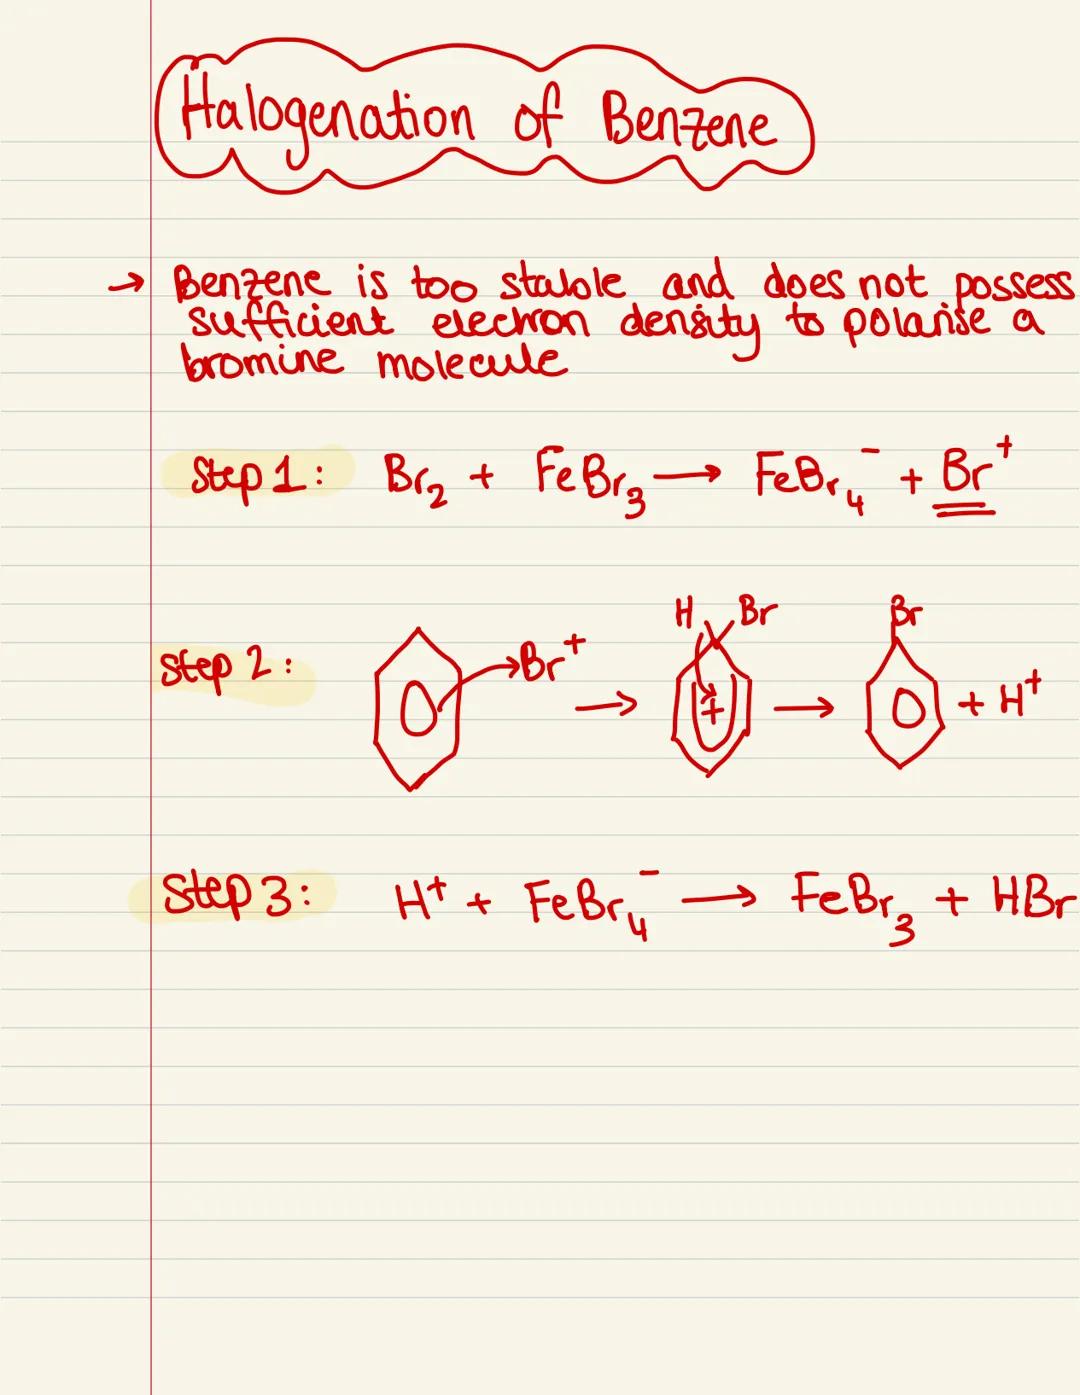 Halogenation of Benzene
→ Benzene is too stable and does not possess
sufficient electron density to polarise a
bromine molecule
Step 1: Br₂ + FeBr₃ → FeBr₄⁻ + Br⁺
Step 2: Br⁺ → H Br + → Br + H⁺
Step 3: H⁺ + FeBr₄⁻ → FeBr₃ + HBr